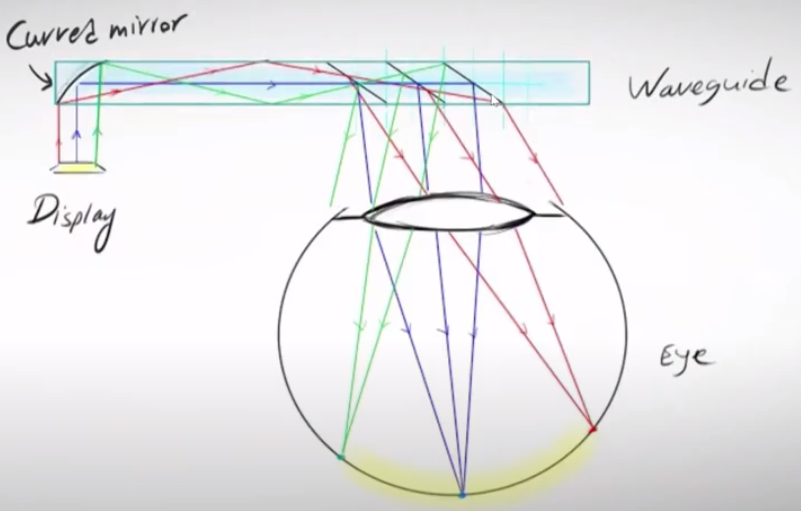 Curved mirror
Waveguide
Display
Eye